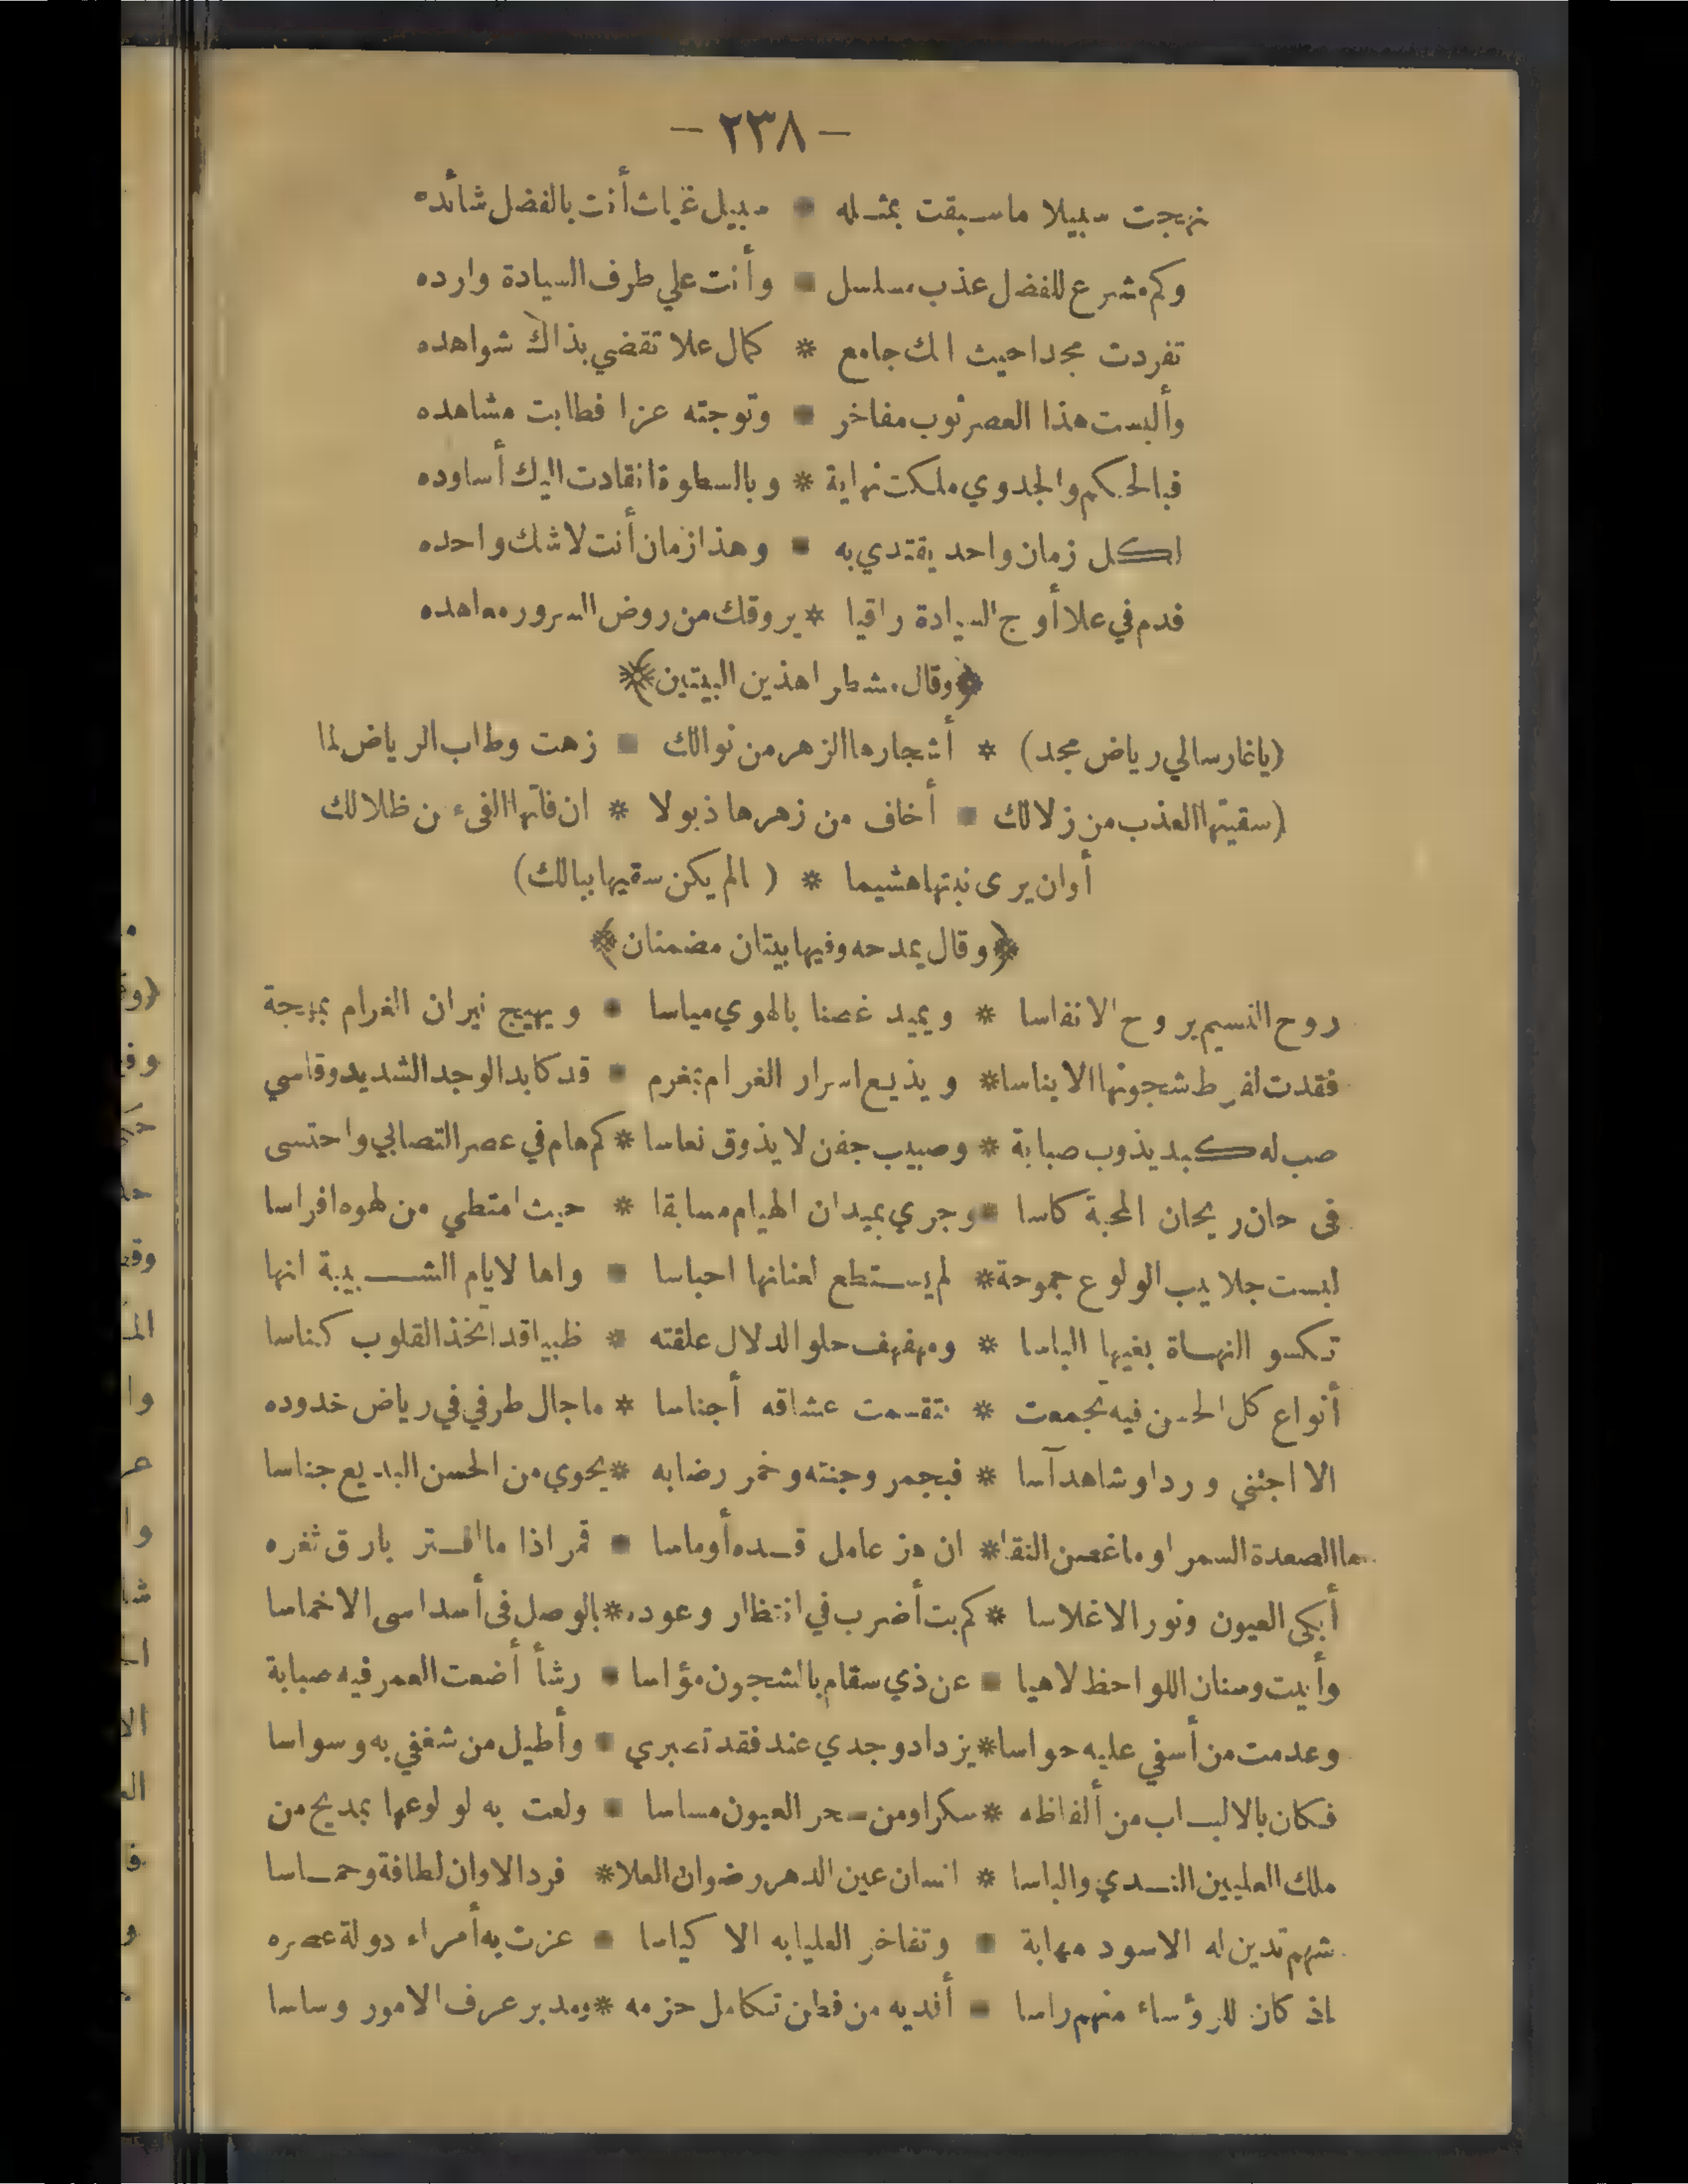 — ٢٣٨ —
نهجت سبيلا ما سبقت بمثله * سبيل غياث أنت بالفضل شائده
وكم مشرع للفضل عذب مسلسل * وأنت علي طرف السيادة وارده
تفردت مجدا حيث الك جامع * كمال علا تقضي بذاك شواهده
وألبست هذا العصر ثوب مفاخر * وتوجته عزا فطابت مشاهده
فبالحكم والجدوي ملكت نهاية * وبالسطوة انقادت اليك أساوده
لكل زمان واحد يقتدي به * وهذا زمان أنت لاشك واحده
فدم في علا أوج السيادة راقيا * يروقك من روض السرور معاهده
﴿وقال مشطرا هذين البيتين﴾
(ياغارسا لي رياض مجد) * أشجارها الزهر من نوالك * زهت وطاب الرياض لما
(سقيتها العذب من زلالك * أخاف من زهرها ذبولا * ان فاتها الفيء من ظلالك
أوان يرى نبتها هشيما * (الم يكن سقيها ببالك)
﴿وقال يمدحه وفيها بيتان مضمنان﴾
روح النسيم يروح الانفاسا * ويميد غصنا بالهوي مياسا * ويهيج نيران الغرام بمهجة
فقدت لفرط شجونها الايناسا * ويذيع اسرار الغرام بمغرم * قد كابد الوجد الشديد وقاسي
صب له كبد يذوب صبابة * وصبيب جفن لا يذوق نعاسا * كم هام في عصر التصابي واحتسى
في حان ريحان المحبة كاسا * وجري بميدان الهيام مسابقا * حيث امتطي من لهوه افراسا
لبست جلابيب الولوع جموحة * لم يستطع لعنانها احباسا * واها لايام الشبيبة انها
تكسو النهاة بغيها الباسا * ومهفهف حلو الدلال علقته * ظبيا قد اتخذ القلوب كناسا
أنواع كل الحسن فيه تجمعت * تقسمت عشاقه أجناسا * ماجال طرفي في رياض خدوده
الا اجتني وردا وشاهد آسا * فبجمر وجنته وخمر رضابه * يحوي من الحسن البديع جناسا
ما الصعدة السمرا وما غصن النقا * ان هز عامل قده أوماسا * قمر اذا ما افتر بارق ثغره
أبكى العيون ونور الاغلاسا * كم بت أضرب في انتظار وعوده * بالوصل في أسداسى الاخماسا
وأبيت وسنان اللواحظ لاهيا * عن ذي سقام بالشجون مؤاسا * رشأ أضعت العمر فيه صبابة
وعدمت من أسفي عليه حواسا * يزداد وجدي عند فقد تصبري * وأطيل من شغفي به وسواسا
فكان بالالباب من ألفاظه * سكرا ومن سحر العيون مساسا * ولعت به لولوعها بمديح من
ملك العليين الندي والباسا * انسان عين الدهر رضوان العلا * فرد الاوان لطافة وحماسا
شهم تدين له الاسود مهابة * وتفاخر العليا به الاكياسا * عزت به أمراء دولة عصره
اذ كان للرؤساء منهم راسا * أفديه من فطن تكامل حزمه * ومدبر عرف الامور وساسا